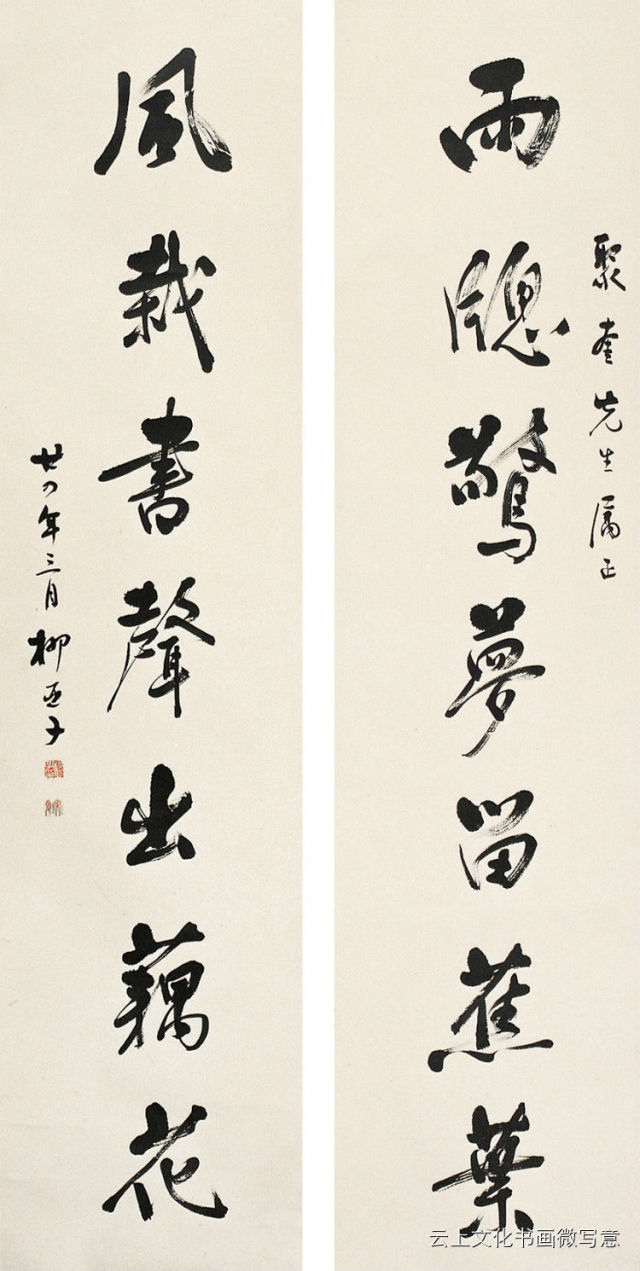 聚奎先生属正
雨牕驚夢留蕉葉
風栽書聲出藕花
廿四年三月柳亞子
云上文化书画微写意